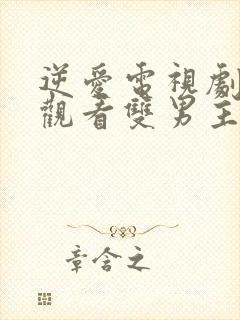 逆愛電視劇
觀看雙男主
章含之